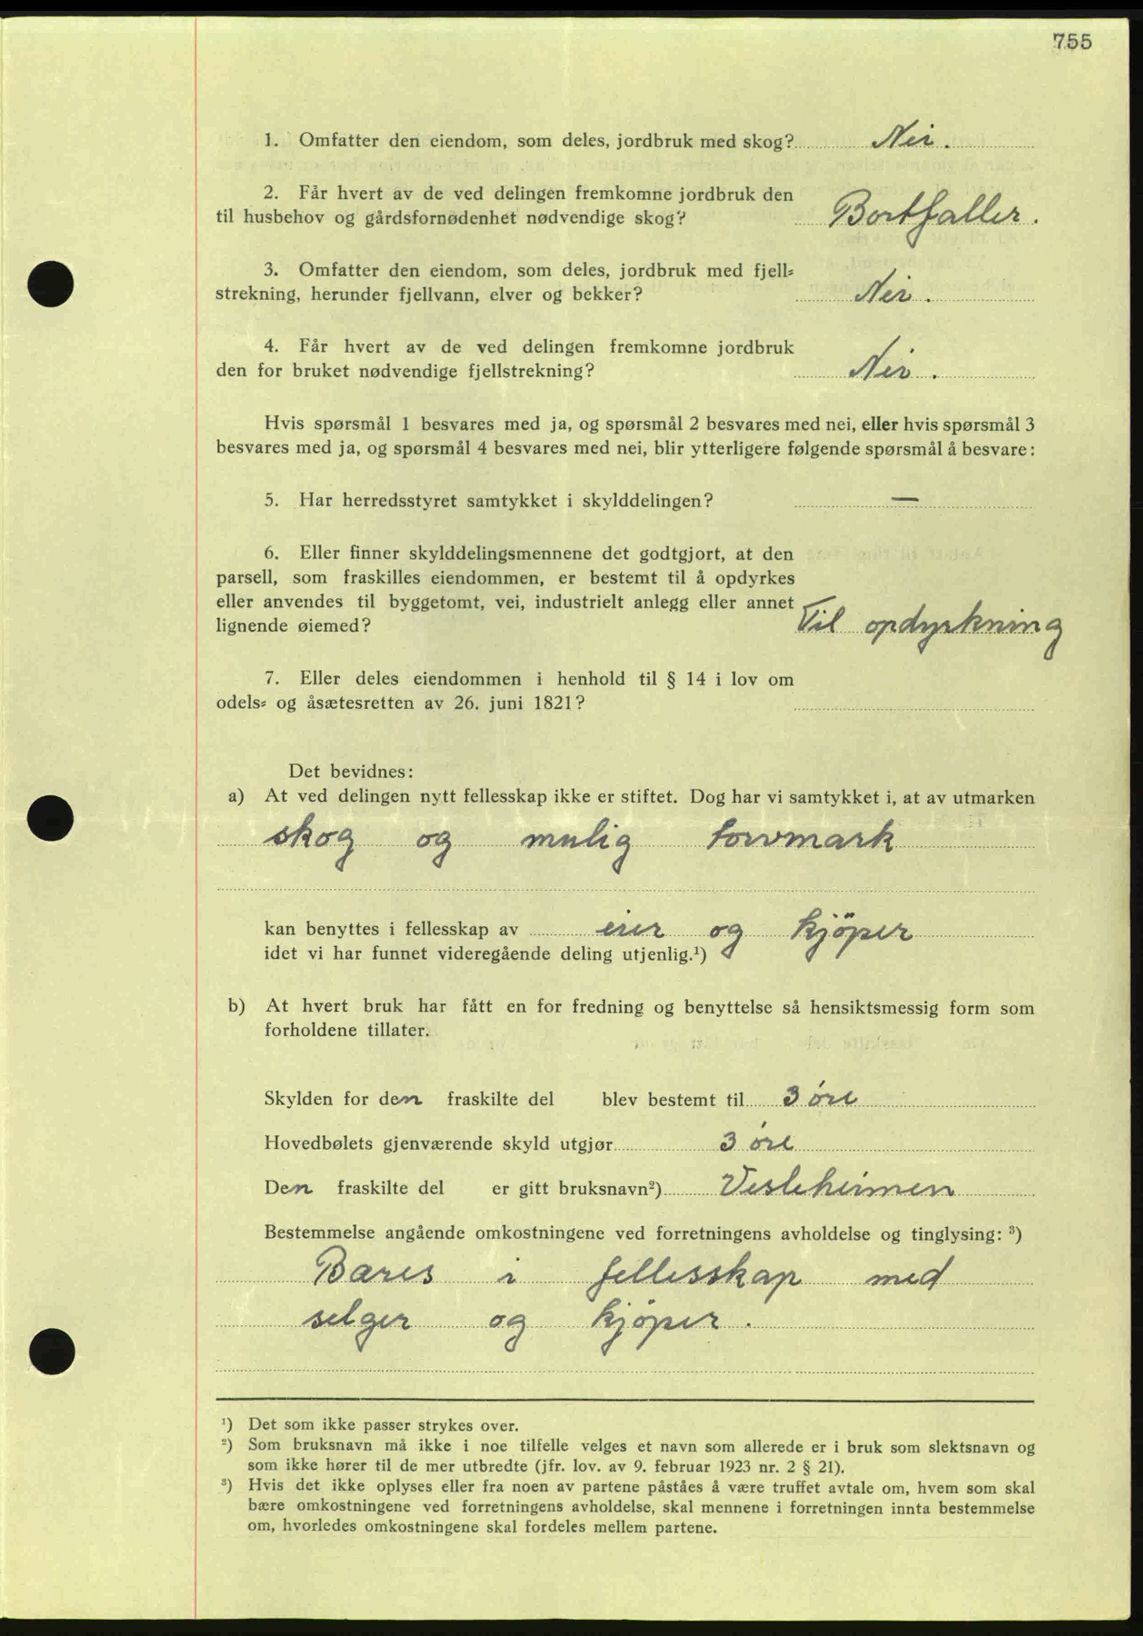 755
1. Omfatter den eiendom, som deles, jordbruk med skog? Nei.
2. Får hvert av de ved delingen fremkomne jordbruk den
til husbehov og gårdsfornødenhet nødvendige skog? Bortfaller.
3. Omfatter den eiendom, som deles, jordbruk med fjell-
strekning, herunder fjellvann, elver og bekker? Nei.
4. Får hvert av de ved delingen fremkomne jordbruk
den for bruket nødvendige fjellstrekning? Nei.
Hvis spørsmål 1 besvares med ja, og spørsmål 2 besvares med nei, eller hvis spørsmål 3
besvares med ja, og spørsmål 4 besvares med nei, blir ytterligere følgende spørsmål å besvare:
5. Har herredsstyret samtykket i skylddelingen? —
6. Eller finner skylddelingsmennene det godtgjort, at den
parsell, som fraskilles eiendommen, er bestemt til å opdyrkes
eller anvendes til byggetomt, vei, industrielt anlegg eller annet
lignende øiemed? Til opdyrkning
7. Eller deles eiendommen i henhold til § 14 i lov om
odels- og åsætesretten av 26. juni 1821?
Det bevidnes:
a) At ved delingen nytt fellesskap ikke er stiftet. Dog har vi samtykket i, at av utmarken
skog og mulig torvmark
kan benyttes i fellesskap av eier og kjöper
idet vi har funnet videregående deling utjenlig.¹)
b) At hvert bruk har fått en for fredning og benyttelse så hensiktsmessig form som
forholdene tillater.
Skylden for den fraskilte del blev bestemt til 3 öre
Hovedbølets gjenværende skyld utgjør 3 öre
Den fraskilte del er gitt bruksnavn²) Vesleheimen
Bestemmelse angående omkostningene ved forretningens avholdelse og tinglysing: ³)
Bæres i fellesskap med
selger og kjöper.
¹) Det som ikke passer strykes over.
²) Som bruksnavn må ikke i noe tilfelle velges et navn som allerede er i bruk som slektsnavn og
som ikke hører til de mer utbredte (jfr. lov. av 9. februar 1923 nr. 2 § 21).
³) Hvis det ikke oplyses eller fra noen av partene påståes å være truffet avtale om, hvem som skal
bære omkostningene ved forretningens avholdelse, skal mennene i forretningen innta bestemmelse
om, hvorledes omkostningene skal fordeles mellem partene.